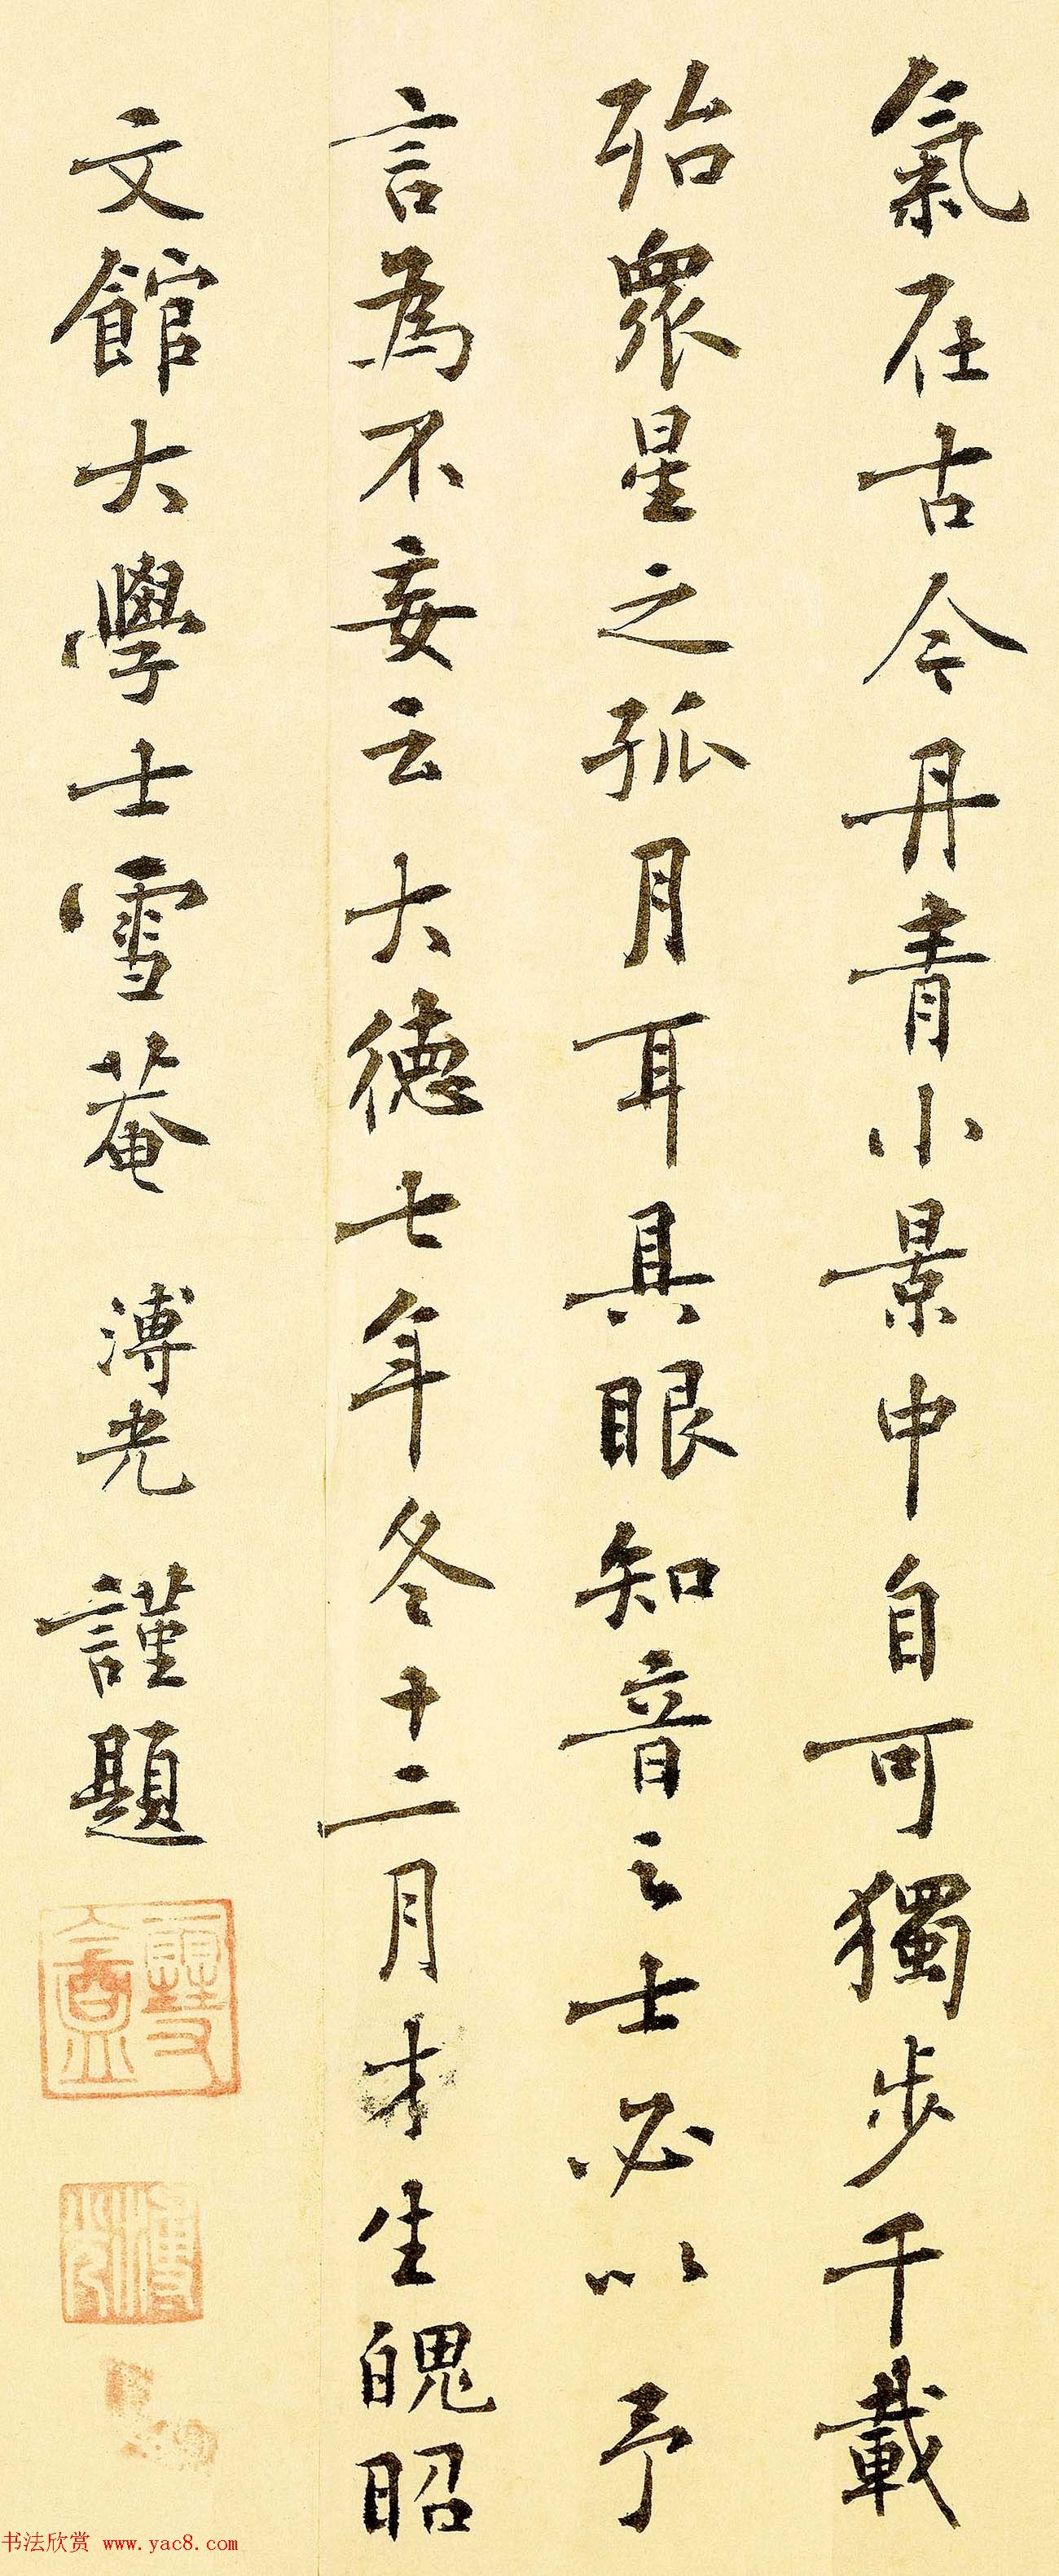 氣在古今丹青小景中自可獨步千載
殆衆星之孤月耳具眼知音之士必以予
言為不妄云大德七年冬十二月才生魄昭
文館大學士雪菴 溥光 謹題
书法欣赏 www.yac8.com